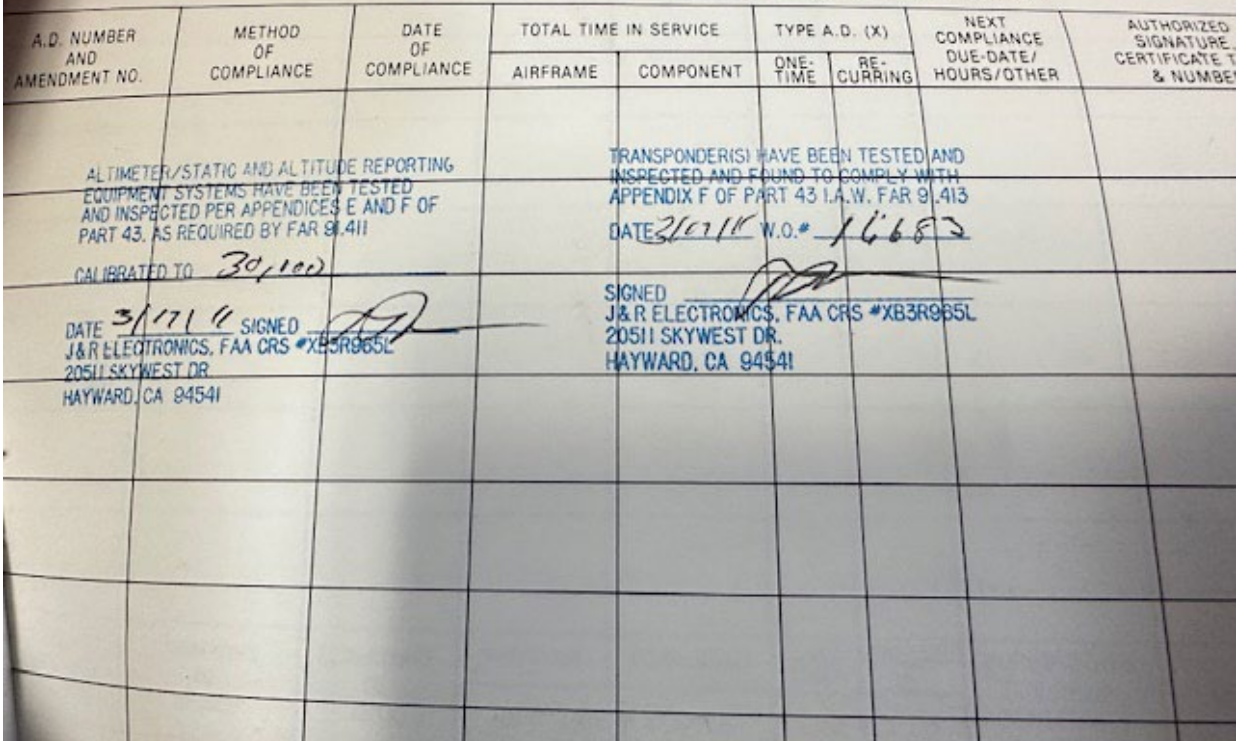 A.D. NUMBER
AND
AMENDMENT NO.
METHOD
OF
COMPLIANCE
DATE
OF
COMPLIANCE
TOTAL TIME IN SERVICE
AIRFRAME
COMPONENT
TYPE A.D. (X)
ONE-
TIME
RE-
CURRING
NEXT
COMPLIANCE
DUE-DATE/
HOURS/OTHER
AUTHORIZED
SIGNATURE,
CERTIFICATE T
& NUMBE
ALTIMETER/STATIC AND ALTITUDE REPORTING
EQUIPMENT SYSTEMS HAVE BEEN TESTED
AND INSPECTED PER APPENDICES E AND F OF
PART 43. AS REQUIRED BY FAR 91.411
CALIBRATED TO 30,000
DATE 3/17/11 SIGNED
J&R ELECTRONICS, FAA CRS #XB3R965L
20511 SKYWEST DR.
HAYWARD, CA 94541
TRANSPONDER(S) HAVE BEEN TESTED AND
INSPECTED AND FOUND TO COMPLY WITH
APPENDIX F OF PART 43 I.A.W. FAR 91.413
DATE 3/17/11 W.O.#
SIGNED
J&R ELECTRONICS, FAA CRS #XB3R965L
20511 SKYWEST DR.
HAYWARD, CA 94541